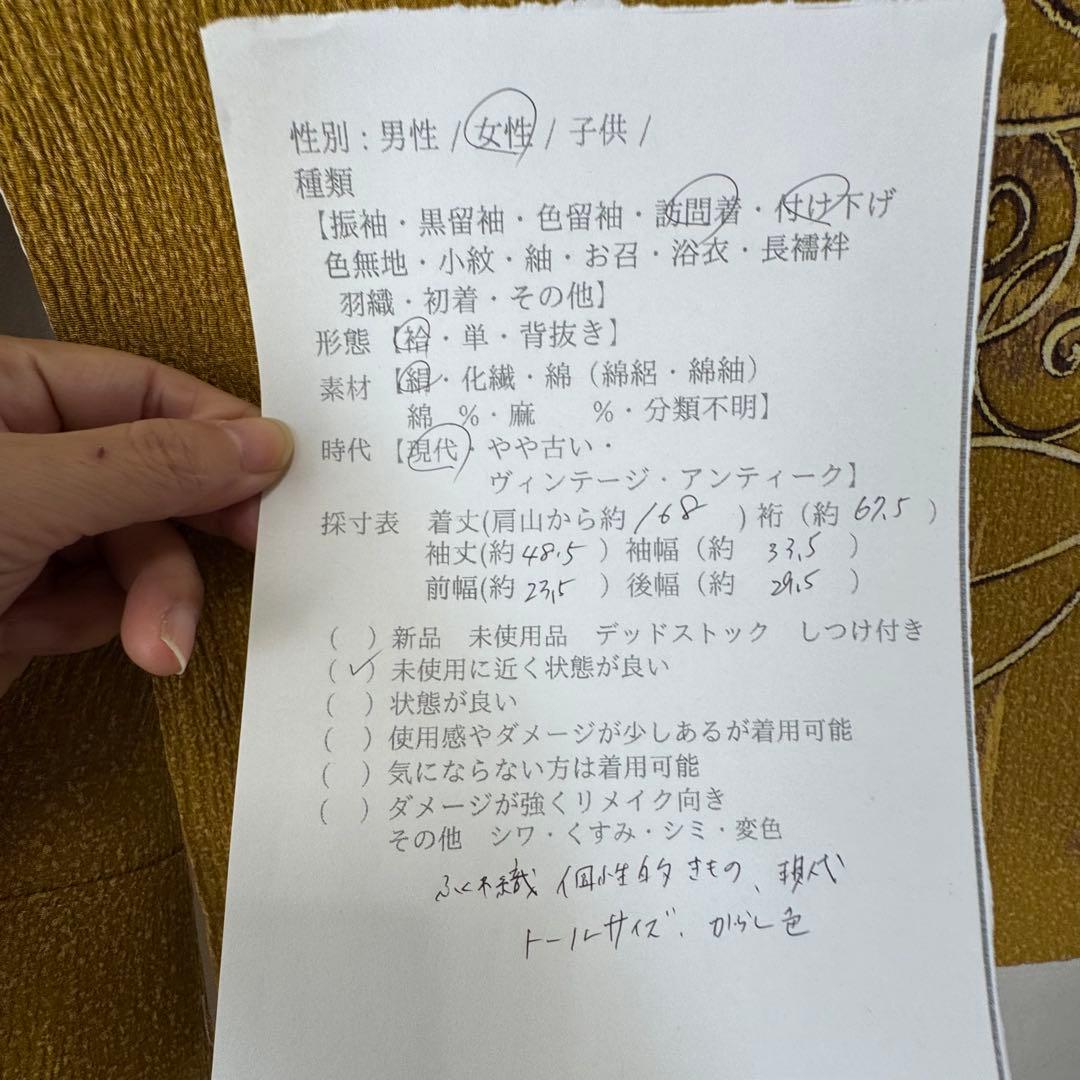 性別：男性 / 女性 / 子供 /
種類
【振袖・黒留袖・色留袖・訪問着・付け下げ
色無地・小紋・紬・お召・浴衣・長襦袢
羽織・初着・その他】
形態 【袷・単・背抜き】
素材 【絹・化繊・綿（綿絽・綿紬）
綿 %・麻 %・分類不明】
時代 【現代・やや古い・
ヴィンテージ・アンティーク】
採寸表 着丈(肩山から約 168 ) 裄（約 67.5 ）
袖丈(約 48.5 ）袖幅（約 33.5 ）
前幅(約 23.5 ）後幅（約 29.5 ）
（ ）新品 未使用品 デッドストック しつけ付き
（✓）未使用に近く状態が良い
（ ）状態が良い
（ ）使用感やダメージが少しあるが着用可能
（ ）気にならない方は着用可能
（ ）ダメージが強くリメイク向き
その他 シワ・くすみ・シミ・変色
ふくれ織 個性的きもの、現代
トールサイズ、からし色